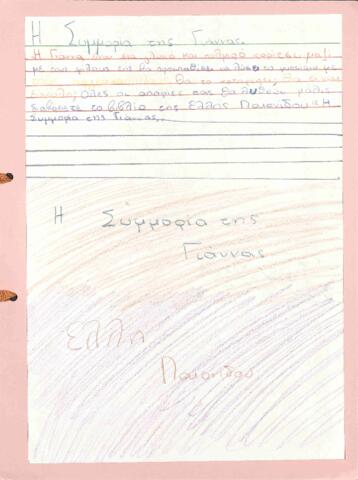 Η Συμμορία της Γιάννας.
Η Γιάννα είναι ένα γλυκό και κορίτσι μαζί
με τους φίλους της θα προσπαθήσει να λύσει το μυστήριο με
Θα τα καταφέρει; Θα είναι
εύκολο; Όλες οι απορίες σας θα λυθούν μόλις
διαβάσετε το βιβλίο της Έλλης Παιονίδου «Η
Συμμορία της Γιάννας.
Η Συμμορία της
Γιάννας
Έλλη
Παιονίδου